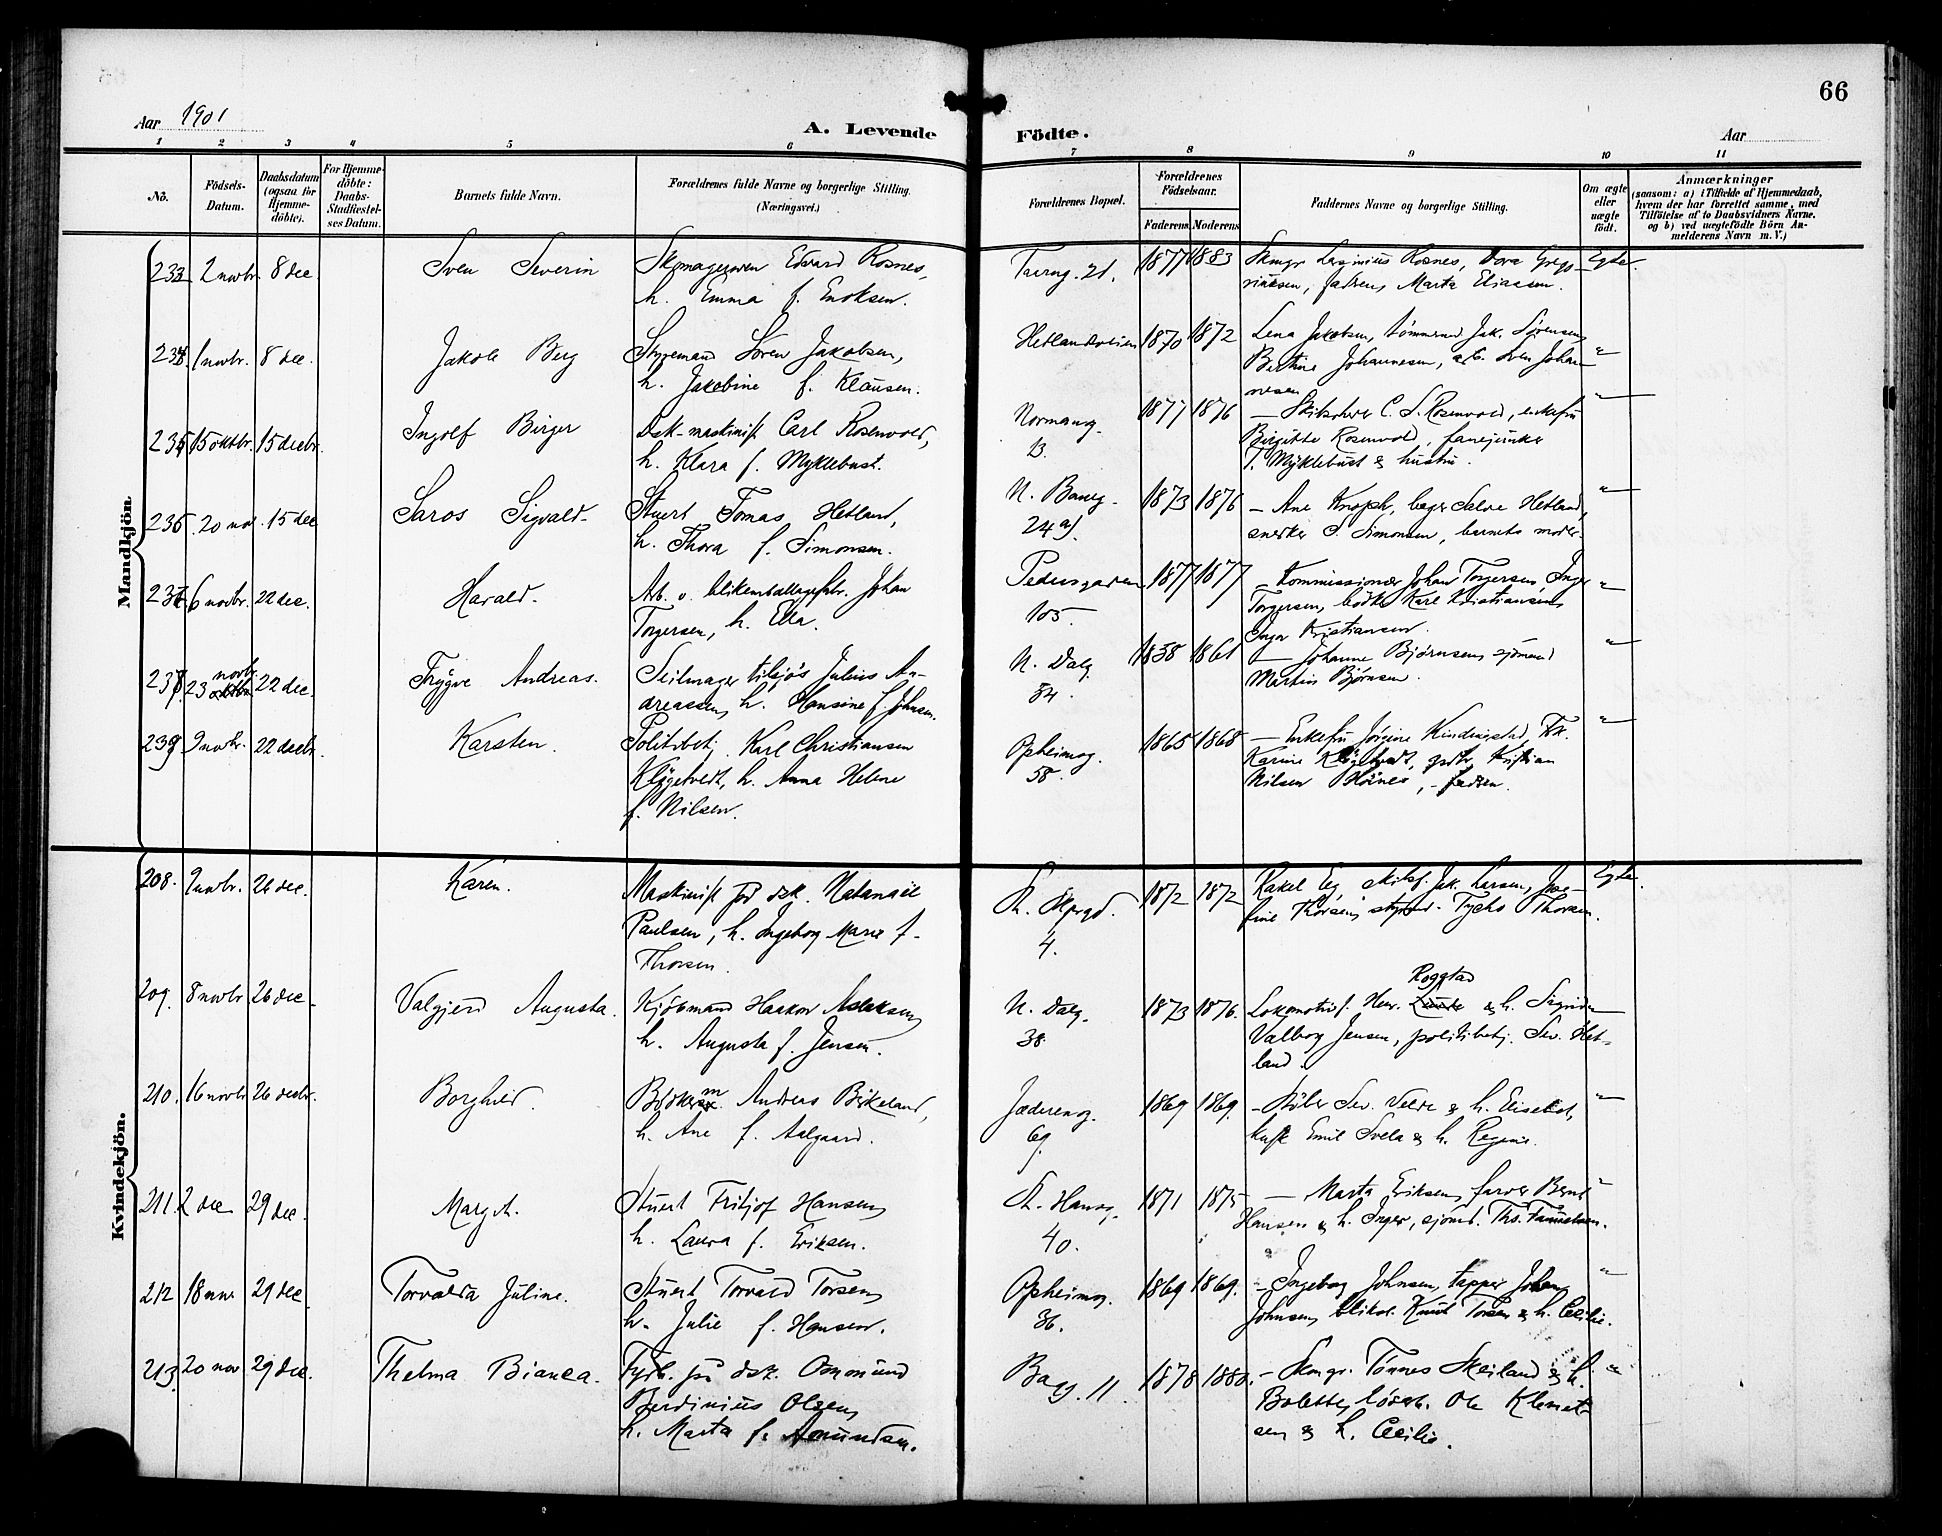 66
Aar 1901
A. Levende Födte.
Aar
1 2 3 4 5 6 7 8 9 10 11
No.
Födsels-Datum.
Daabsdatum (ogsaa for Hjemme-döbte).
For Hjemme-döbte: Daabs-Stadfæstelses Datum.
Barnets fulde Navn.
Forældrenes fulde Navne og borgerlige Stilling. (Næringsvei.)
Forældrenes Bopæl.
Forældrenes Födselsaar.
Faderens Moderens
Faddernes Navne og borgerlige Stilling.
Om ægte eller uægte födt.
Anmærkninger
(saasom: a) i Tilfælde af Hjemmedaab, hvem der har forrettet samme, med Tilföielse af to Daabsvidners Navne. og b) ved uægtefödte Börn Anmelderens Navn m. V.)
Mandkjön
233 2 novbr. 8 dec Sven Severin Skomagersven Edvard Rosnes,
h. Emma f. Enoksen.
21. 1877 1883 Rosnes, Dora
fadren, Marta Eliassen. Egte.
234. 1 novbr. 8 dec. Jakob Berg Styrmand Sören Jakobsen,
h. Jakobine f. Klausen.
Hetlandsveien 1870 1872 Lena Jakobsen, tömmermd Jak. Sörensen,
Bertine Johannesen, arb. Sven Johan-
nesen "
235 15 oktbr. 15 decbr. Ingolf Birger Dsk-maskinist Carl Rosenvold,
h. Klara f. Myklebust.
Normansg. 13. 1877 1876 — Skibsfører C. S. Rosenvold, enkefru
Birgitte Rosenvold, fanejunker
T. Myklebust & hustru. "
236 20 nov. 15 dec Saros Sigvald Stuert Tomas Hetland,
h. Thora f. Simonsen.
N. Baneg. 24 a). 1873 1876 — Ane Knoph, Hetland,
snedker S. Simonsen, barnets moder. "
237 6 novbr. 22 dec. Harald. Arb. v. blikemballagefabr. Johan
Torgersen, h. Ella.
Pedersgaden 105. 1877 1877 — Kommissionær Johan Torgersen, Inger
Torgersen, bödker Karl Kristiansen,
Inger Kristiansen. "
238. 23 novbr. 22 dec. Trygve Andreas. Seilmager tilsjös Julius An-
dreassen, h. Hansine f. Johnsen.
N. Dalg. 54. 1858 1861 — Johanne Björnsen, sjömand
Martin Björnsen. "
239 9 novbr. 22 decbr. Karsten. Politibetj. Karl Christiansen
Klögetvedt, h. Anna Helene
f. Nilsen.
Opheimsg. 58. 1865 1868 — Enkefru Jörgine Kindingstad, Frk.
Karine Klögetvedt, gdbr. Kristian
Nilsen Hönes, - fadren. "
Kvindekjön.
208. 2 novbr. 26 dec. Karen. Maskinist på dsk. Natanael
Paulsen, h. Ingeborg Marie f.
Thorsen.
4. 1872 1872 Rakel Eeg, skibsf. Jak. Larsen, Jose-
fine Thorsen, styrmd. Tycho Thorsen. Egte.
209. 8 novbr 26 dec Valgjerd Augusta. Kjöbmand Haakon Aslaksen,
h. Augusta f. Jensen.
N. Dalg. 38 1873 1876. Lokomotivf. Henr. Roggtad & h. Sigrid
Valborg Jensen, politibetj. Sev. Het-
land.
210. 16 novbr 26 decbr. Borghild. Bödkerm. Andreas Birkeland,
h. Ane f. Aalgaard.
Jæderensg. 69. 1869 1869. Sev. Velde & h. Elisabet,
Emil Svela & h. Regine. "
211. 2 dec 29 dec. Margit. Stuert Fritjof Hansen,
h. Laura f. Eriksen.
St. Hansg. 40. 1871 1875 — Marta Eriksen, farver Bernt
Hansen & h. Inger, sjömd. Ths. Samuelsen. "
212 18 nov 29 dec Torvalda Juline. Stuert Torvald Torsen,
h. Julie f. Hansen.
Opheimsg. 36. 1869 1869. — Ingeborg Johnsen, tapper Johan
Johnsen, Knut Torsen & h. Cecilie. "
213. 20 nov 29 dec. Thelma Bianca. Fyrb. på dsk. Osmund
Berdinius Olsen,
h. Marta f. Amundsen.
Bagg. 11. 1878 1880. — Skmgr. Tönnes Skeiland & h.
Bolette, lösarb. Ole Klemet-
sen & h. Cecilie. "